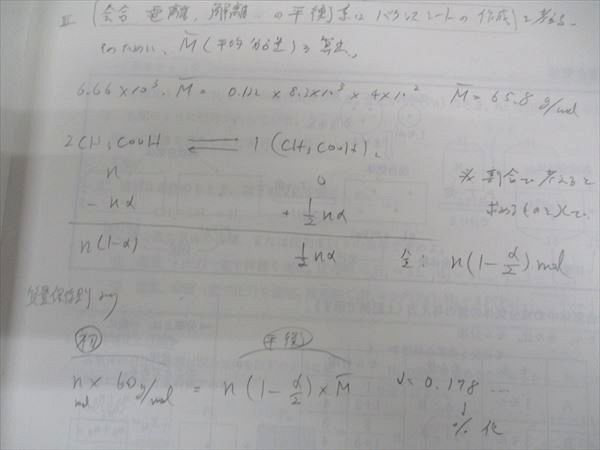 III (会合, 電離, 解離 … の平衡) 系は バランスシートの作成 で考える.
そのために, M̄ (平均分子量) を 算出.
6.66×10³・M̄ = 0.122 × 8.3×10³ × 4×10² M̄ = 65.8 g/mol
2CH₃COOH ⇄ 1(CH₃COOH)₂
n 0 ※ 割合で考えると
- nα + 1/2 nα
n(1-α) 1/2 nα 全: n(1 - α/2) mol
質量保存則より
初 平衡
n × 60 g/mol = n (1 - α/2) × M̄ α = 0.178 …
mol ↓
% 化